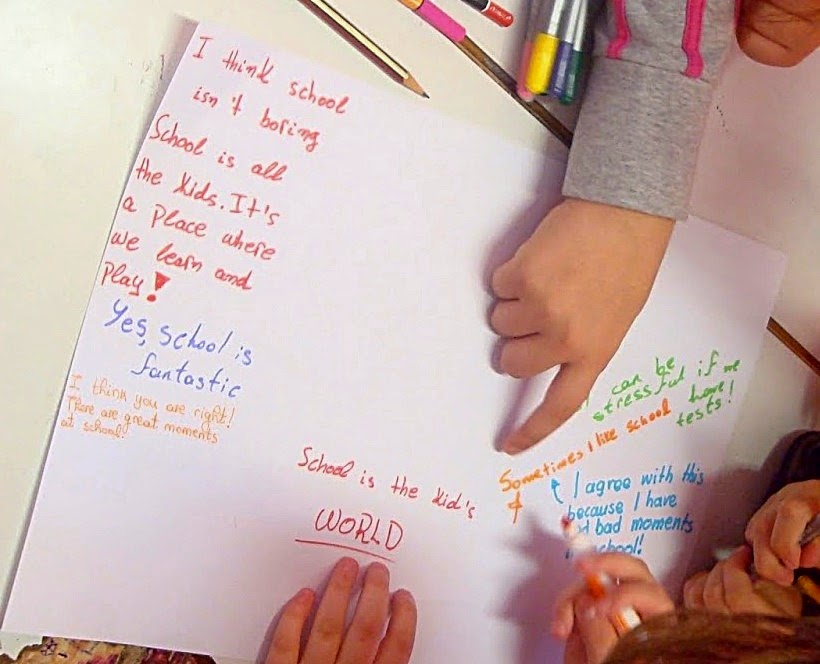 I think school
isn't boring
School is all
the kids. It's
a place where
we learn and
Play!
Yes, school is
fantastic
I think you are right!
There are great moments
at school!
School is the kid's
WORLD
can be
stressful if we
have
tests!
Sometimes I like school
I agree with this
because I have
bad moments
school!